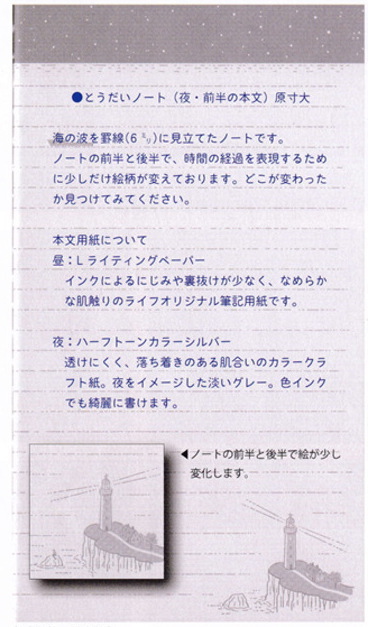 ●とうだいノート（夜・前半の本文）原寸大
海の波を罫線(6㍉)に見立てたノートです。
ノートの前半と後半で、時間の経過を表現するため
に少しだけ絵柄が変えております。どこが変わった
か見つけてみてください。
本文用紙について
昼：Lライティングペーパー
インクによるにじみや裏抜けが少なく、なめらか
な肌触りのライフオリジナル筆記用紙です。
夜：ハーフトーンカラーシルバー
透けにくく、落ち着きのある肌合いのカラークラ
フト紙。夜をイメージした淡いグレー。色インク
でも綺麗に書けます。
◀ノートの前半と後半で絵が少し
変化します。